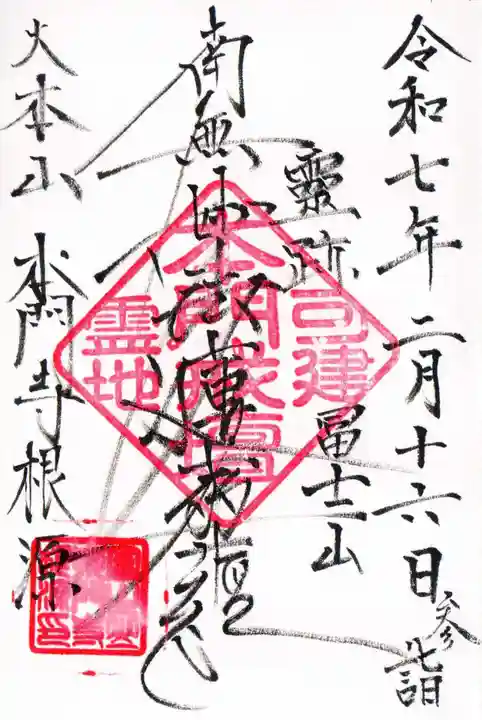 令和七年二月十六日参詣
靈跡 冨士山
南無妙法蓮華経
大本山 本門寺根源
可建
本門戒壇
霊地